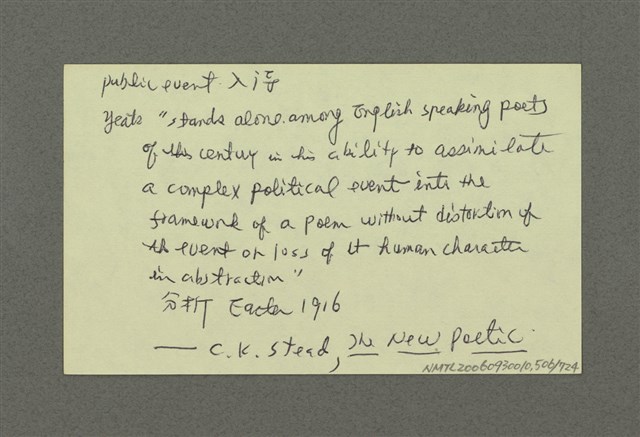 public event 入詩
Yeats "stands alone among English speaking poets
of this century in his ability to assimilate
a complex political event into the
framework of a poem without distortion of
the event or loss of its human character
in abstraction"
分析 Easter 1916
— C.K. Stead, The New Poetic.
NMTL20060930010,506/724